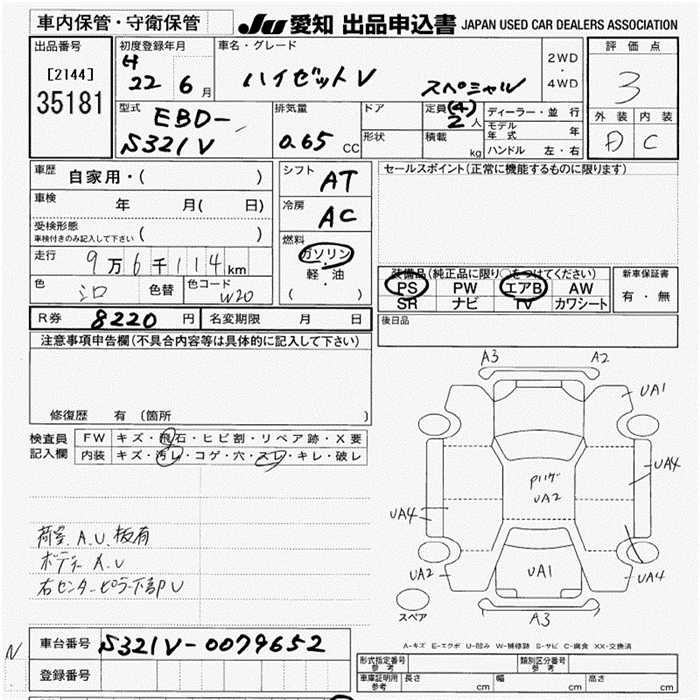 車内保管・守衛保管 JU 愛知 出品申込書 JAPAN USED CAR DEALERS ASSOCIATION
出品番号 [2144] 35181
初度登録年月 H 22 6 月
車名・グレード ハイゼットV スペシャル
2WD・4WD
評価点 3
外装 内装
C
型式 EBD-S321V
排気量 0.65 CC
ドア
形状
定員 (4) 2 人
積載 kg
ディーラー・並行
モデル年式 年
ハンドル 左・右
車歴 自家用・( )
車検 年 月( 日)
受検形態 車検付きのみ記入して下さい ( )
走行 9万6千114km
色 シロ 色替 色コード W20
シフト AT
冷房 AC
燃料 ガソリン・軽・油 ( )
セールスポイント(正常に機能するものに限ります)
装備品(純正品に限り○をつけてください)
PS PW エアB AW
SR ナビ TV カワシート
新車保証書 有・無
R券 8220 円 名変期限 月 日
後日品
注意事項申告欄(不具合内容等は具体的に記入して下さい)
修復歴 有 (箇所 )
検査員記入欄
FW キズ・飛石・ヒビ割・リペア跡・X要
内装 キズ・汚レ・コゲ・穴・スレ・キレ・破レ
荷室 A.U.板有
ボディー A.U
右センターピラー下部U
A3 A2
UA1
UA4
UA2
UA4
UA1
UA2 UA4
A3
スペア
A-キズ E-エクボ U-凹み W-補修跡 S-サビ C-腐食 XX-交換済
N
車台番号 S321V-0079652
登録番号
形式指定番号 参考
類別区分番号 参考
車庫証明用 参考 長さ cm 幅 cm 高さ cm